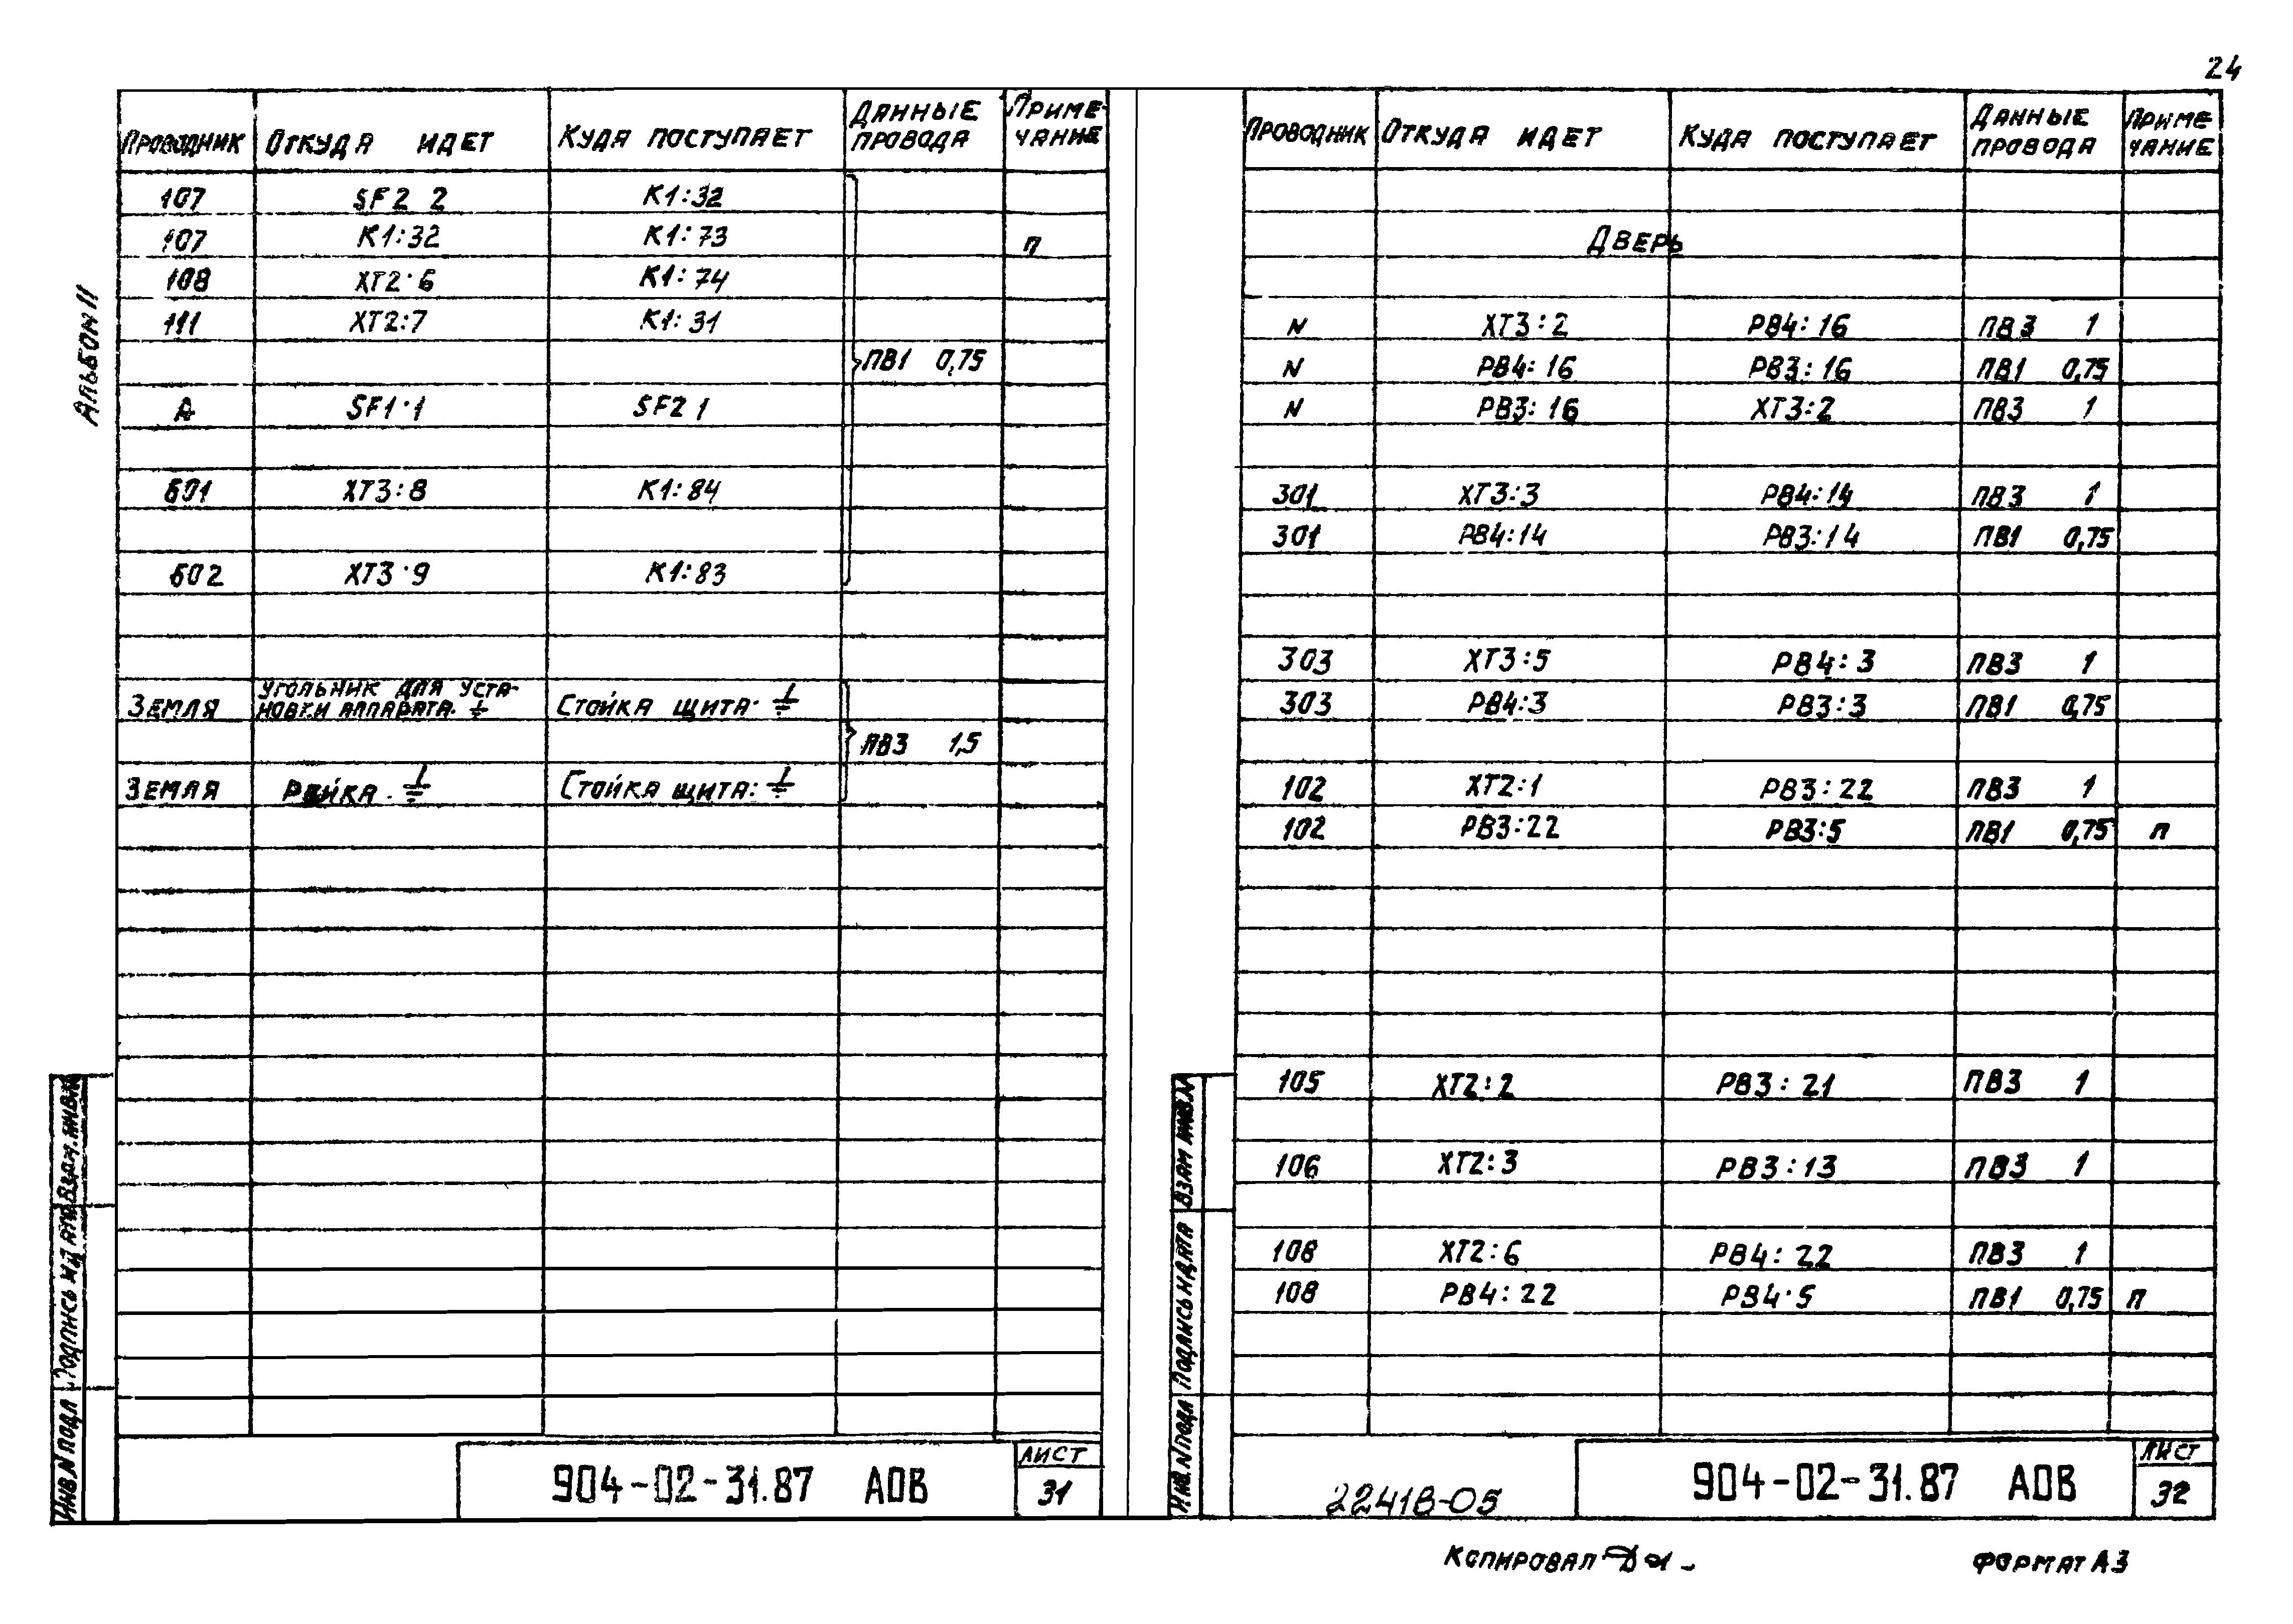 24
Альбом II
Проводник Откуда идет Куда поступает Данные провода Приме-чание
107 SF2 2 К1:32
107 К1:32 К1:73 п
108 ХТ2·6 К1:74
111 ХТ2:7 К1:31
ПВ1 0,75
А SF1·1 SF2 1
601 ХТ3:8 К1:84
602 ХТ3·9 К1:83
Земля Угольник для уста-
новки аппарата. ⏚ Стойка щита· ⏚
ПВ3 1,5
Земля Рейка. ⏚ Стойка щита: ⏚
Взам. инв.№
Подпись и дата
Инв.N подл
904-02-31.87 АОВ
Лист
31
Проводник Откуда идет Куда поступает Данные провода Приме чание
Дверь
N ХТ3:2 РВ4:16 ПВ3 1
N РВ4:16 РВ3:16 ПВ1 0,75
N РВ3:16 ХТ3:2 ПВ3 1
301 ХТ3:3 РВ4:14 ПВ3 1
301 РВ4:14 РВ3:14 ПВ1 0,75
303 ХТ3:5 РВ4:3 ПВ3 1
303 РВ4:3 РВ3:3 ПВ1 0,75
102 ХТ2:1 РВ3:22 ПВ3 1
102 РВ3:22 РВ3:5 ПВ1 0,75 п
105 ХТ2:2 РВ3:21 ПВ3 1
106 ХТ2:3 РВ3:13 ПВ3 1
108 ХТ2:6 РВ4:22 ПВ3 1
108 РВ4:22 РВ4·5 ПВ1 0,75 п
Взам инв.№
Подпись и дата
Инв.N подл
22418-05
904-02-31.87 АОВ
Лист
32
Копировал
Формат А3